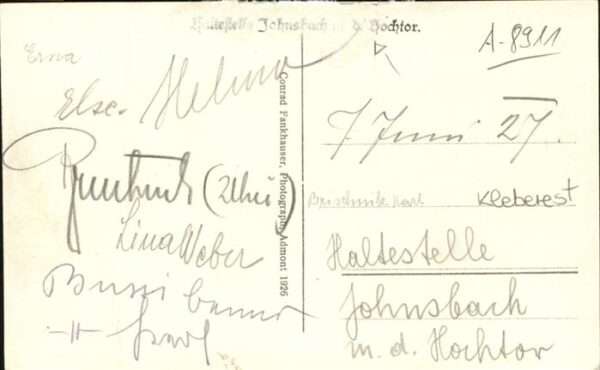 Haltestelle Johnsbach m. d. Hochtor.
A-8911
Erna
Else. Helma
Conrad Fankhauser, Photograph, Admont 1926
7 Juni 27.
(Uhu)
Kleberest
Lina Weber
Haltestelle
Johnsbach
m. d. Hochtor